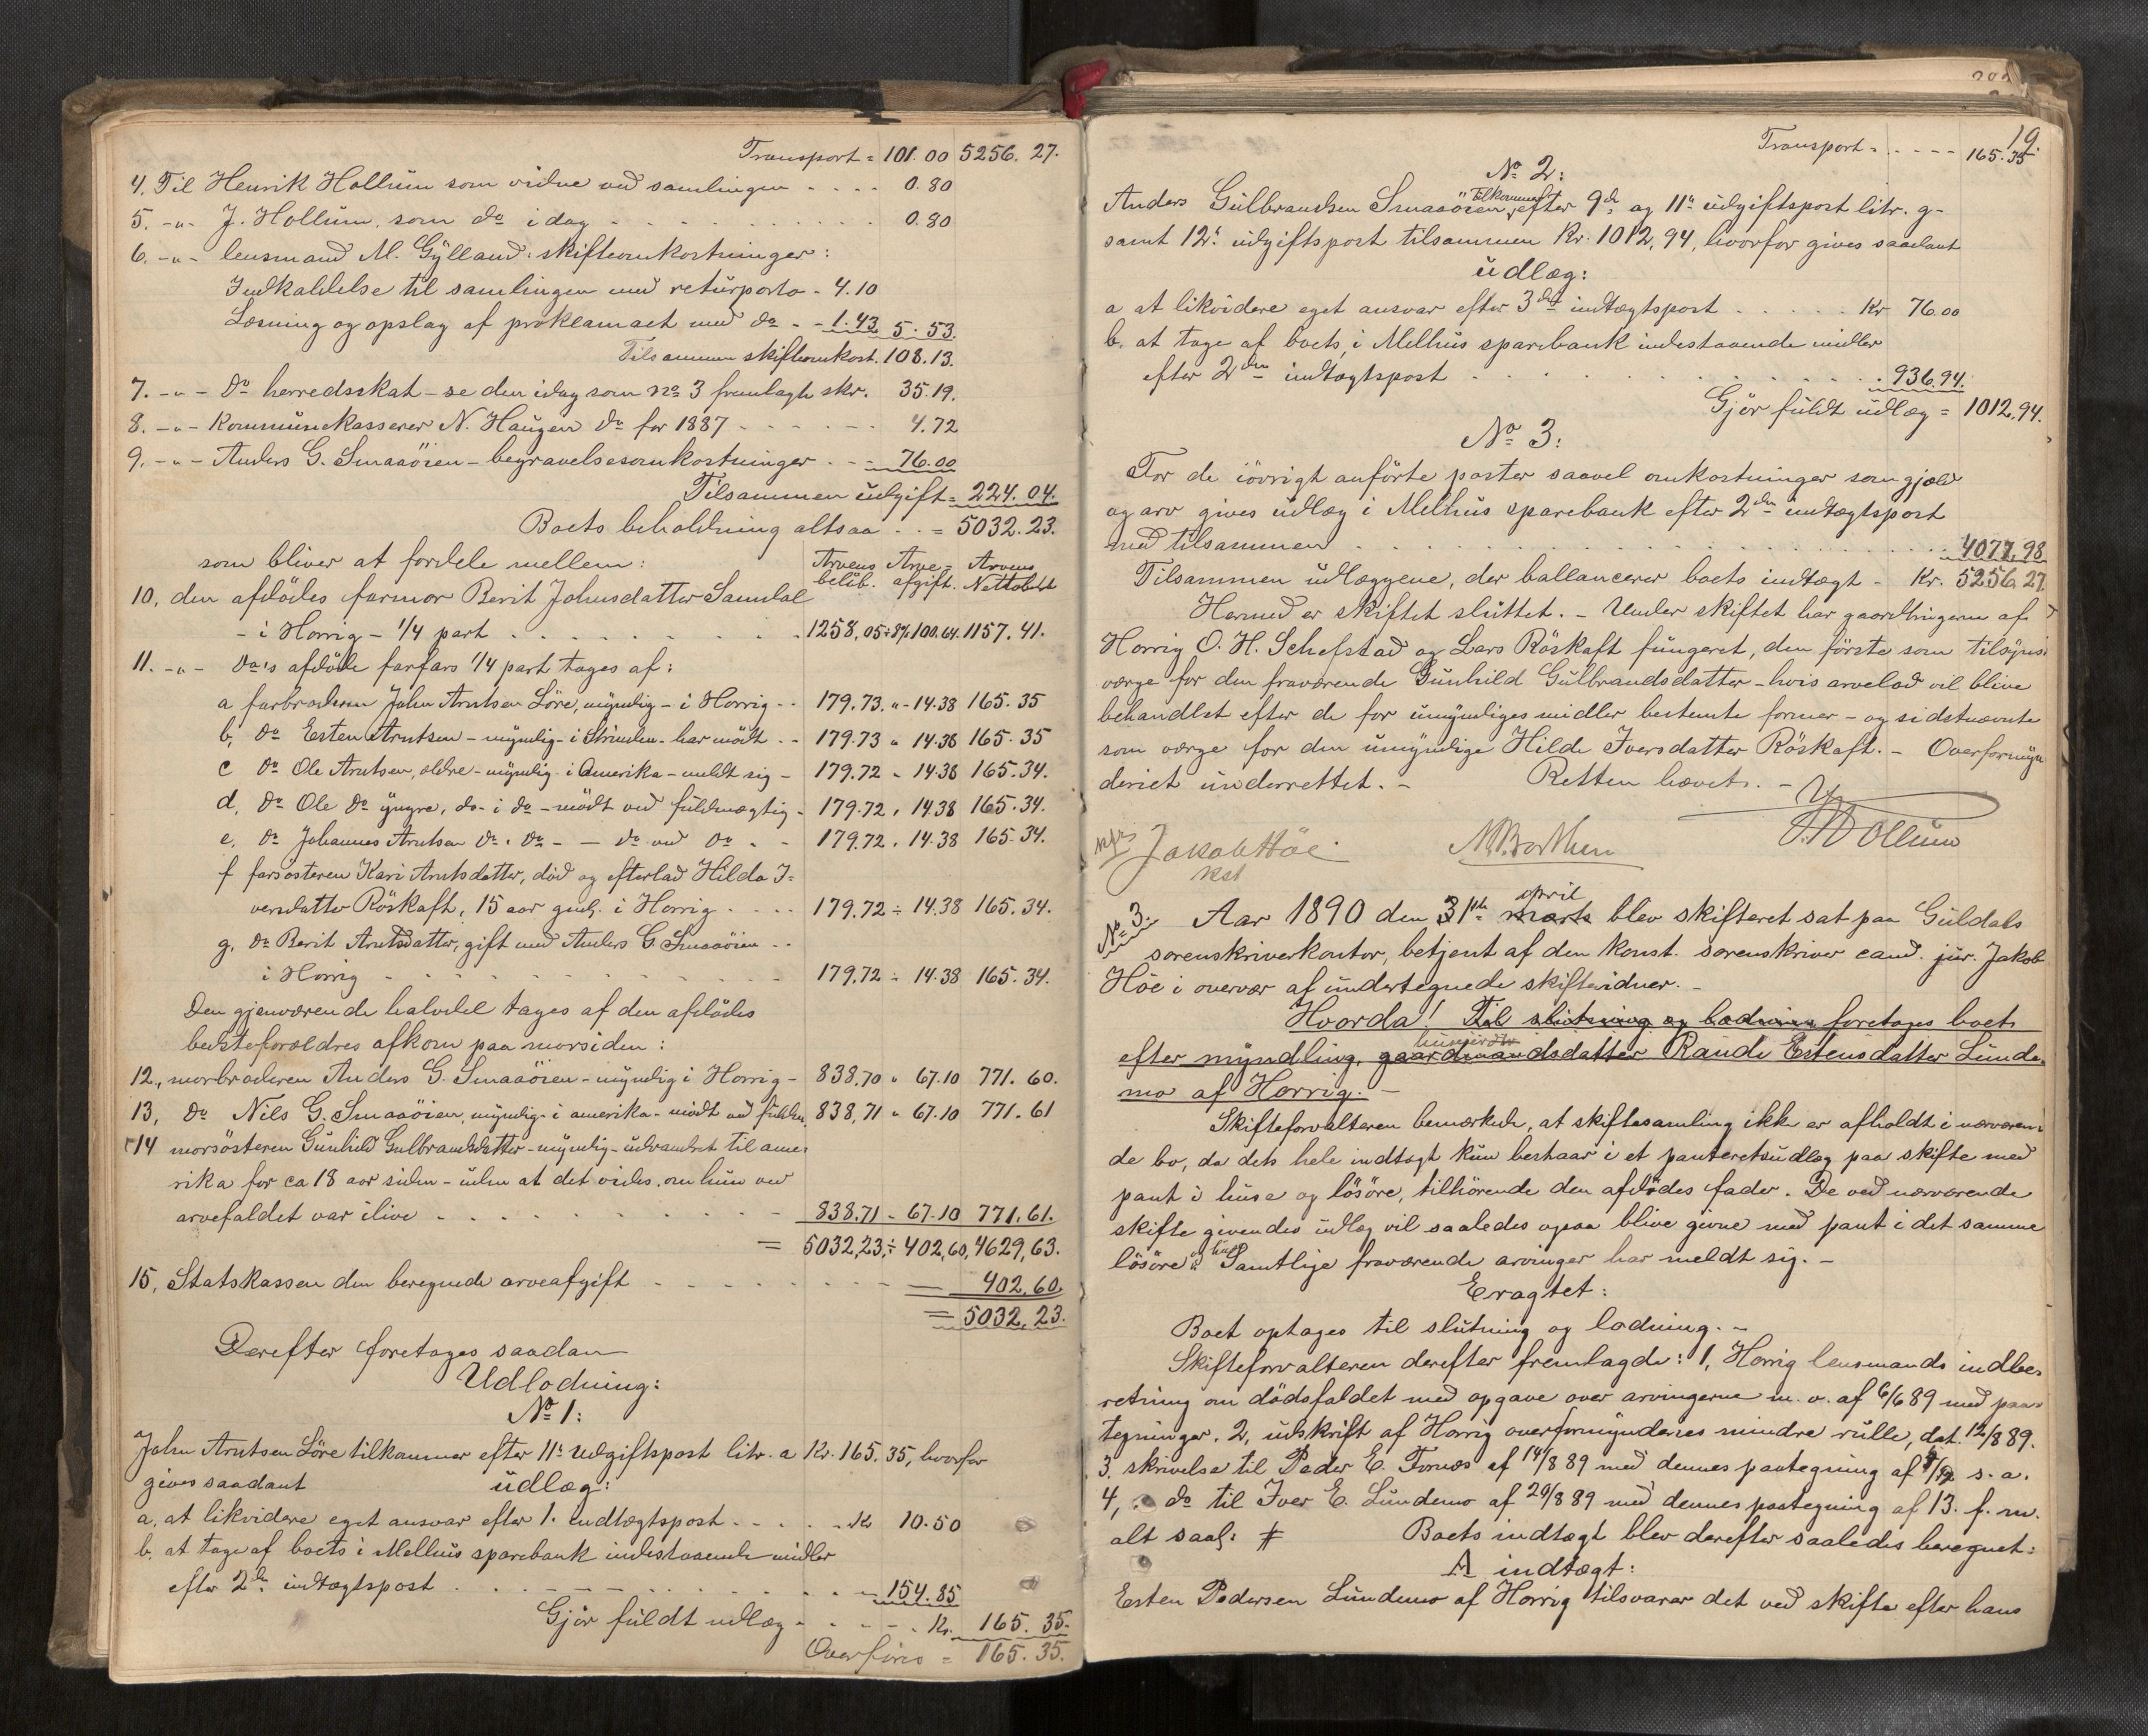 Transport = 101.00 5256.27.
4. Til Henrik Hollum som vidne ved samlingen - - - - 0.80
5. -"- J. Hollum, som do idag - - - - 0.80
6. -"- lensmand M. Gylland: skifteomkostninger:
Indkaldelse til samlingen med returporto - 4.10
Læsning og opslag af proklamaet med do - - 1.43 5.53.
Tilsammen skifteomkost. 108.13.
7. -"- do herredsskat - se den idag som no 3 fremlagte skr. 35.19.
8. -"- Kommunekasserer N. Haugen do for 1887 - - - - 4.72
9. -"- Anders G. Smaaöien - begravelsesomkostninger - - - 76.00
Tilsammen udgift = 224.04.
Boets beholdning altsaa - - = 5032.23.
som bliver at fordele mellem: Arvens beløb. Arve-afgift. Arvens Nettobeløb
10, den afdödes farmor Berit Johnsdatter Samdal
- i Horrig - 1/4 part - - - - 1258,05 ÷ 8% 100.64. 1157.41.
11. -"- do's afdöde farfars 1/4 part tages af:
a farbroderen John Arntsen Löre, myndig - i Horrig - - 179.73. " - 14.38 165.35
b, do Esten Arntsen - myndig - i Strinden - har mödt - - 179.73 " 14.38 165.35
c do Ole Arntsen, ældre - myndig - i Amerika - meldt sig - 179.72 - 14.38 165.34.
d, do Ole do yngre, do - i do - mödt ved fuldmægtig - 179.72, 14.38 165.34.
e, do Johannes Arntsen do. do - - do ved do - - 179.72, 14.38 165.34.
f farsösteren Kari Arntsdatter, död og efterlad Hilda I-
versdatter Röskaft, 15 aar gml. i Horrig - - - - 179.72 ÷ 14.38 165.34.
g, do Berit Arntsdatter, gift med Anders G. Smaaöien - -
i Horrig - - - - 179,72 ÷ 14.38 165.34.
Den gjenværende halvdel tages af den afdödes
bedsteforældres afkom paa morsiden:
12., morbroderen Anders G. Smaaöien - myndig i Horrig - 838,70 " 67.10 771.60.
13, do Nils G. Smaaöien, myndig - i amerika - mödt ved fuldm. 838,71 " 67.10 771.61
14 morsösteren Gunhild Gulbrandsdatter - myndig - udvandret til ame-
rika for ca 18 aar siden - uden at det vides, om hun ved
arvefaldet var ilive - - - - 838.71 - 67.10 771.61.
= 5032,23, ÷ 402,60, 4629,63.
15, Statskassen den beregnede arveafgift - - - - 402,60.
= 5032,23.
Derefter foretages saadan
Udlodning:
No 1:
John Arntsen Löre tilkommer efter 11te udgiftspost litr. a Kr. 165.35, hvorfor
gives saadant udlæg:
a, at likvidere eget ansvar efter 1. indtægtspost - - - - Kr 10.50
b. at tage af boets i Melhus sparebank indestaaende midler
efter 2den indtægtspost - - - - 154.85
Gjør fuldt udlæg - - - - Kr. 165.35.
Overføres = 165.35.
19.
Transport = - - - - 165.35
No 2:
Anders Gulbrandsen Smaaöien tilkommer efter 9de og 11te udgiftspost litr. g -
samt 12te udgiftspost tilsammen Kr. 1012,94, hvorfor gives saadant
udlæg:
a at likvidere eget ansvar efter 3die indtægtspost - - - - Kr 76.00
b, at tage af boets, i Melhus sparebank indestaaende midler
efter 2den indtægtspost - - - - 936.94.
Gjør fuldt udlæg = 1012.94.
No 3:
For de iövrigt anförte poster saavel omkostninger som gjæld
og arv gives udlæg i Melhus sparebank efter 2den indtægtspost
med tilsammen - - - - 4077,98
Tilsammen udlæggene, der ballancerer boets indtægt - Kr. 5256,27
Hermed er skiftet sluttet. - Under skiftet har gaardbrugerne af
Horrig O. H. Schefstad og Lars Röskaft fungeret, den förste som tilsyns-
værge for den fraværende Gunhild Gulbrandsdatter - hvis arvelod vil blive
behandlet efter de for umyndiges midler bestemte former - og sidstnævnte
som værge for den umyndige Hilde Iversdatter Röskaft. - Overformyn
deriet underrettet. - Retten hævet. -
Jakob Höe
kst
J. Hollum
No 3. Aar 1890 den 1ste april marts blev skifteret sat paa Guldals
sorenskriverkontor, betjent af den konst. sorenskriver cand. jur. Jakob
Höe i overvær af undertegnede skiftevidner. -
Hvorda! Til slutning og lodning foretages boet
efter myndling, gaardmandsdatter Randi Estensdatter Lunde-
mo af Horrig. -
Skifteforvalteren bemærkede, at skiftesamling ikke er afholdt i nærværen-
de bo, da dets hele indtægt kun bestaar i et panteretsudlæg paa skifte med
pant i huse og lösöre, tilhörende den afdödes fader. De ved nærværende
skifte givendes udlæg vil saaledes ogsaa blive givne med pant i det samme
lösöre og huse. Samtlige fraværende arvinger har meldt sig. -
Eragtet:
Boet optages til slutning og lodning. -
Skifteforvalteren derefter fremlagde: 1, Horrig lensmands indbe-
retning om dödsfaldet med opgave over arvingerne m. v. af 6/6 89 med paa-
tegninger. 2, udskrift af Horrig overformynderies mindre rulle, dat. 12/8 89.
3. skrivelse til Peder E. Fornæs af 14/8 89 med dennes paategning af /12 s. a.
4, do til Iver E. Lundemo af 20/8 89 med dennes paategning af 13. f. m.
alt saal: # Boets indtægt blev derefter saaledes beregnet:
A indtægt:
Esten Pedersen Lundemo af Horrig tilsvarer det ved skifte efter hans